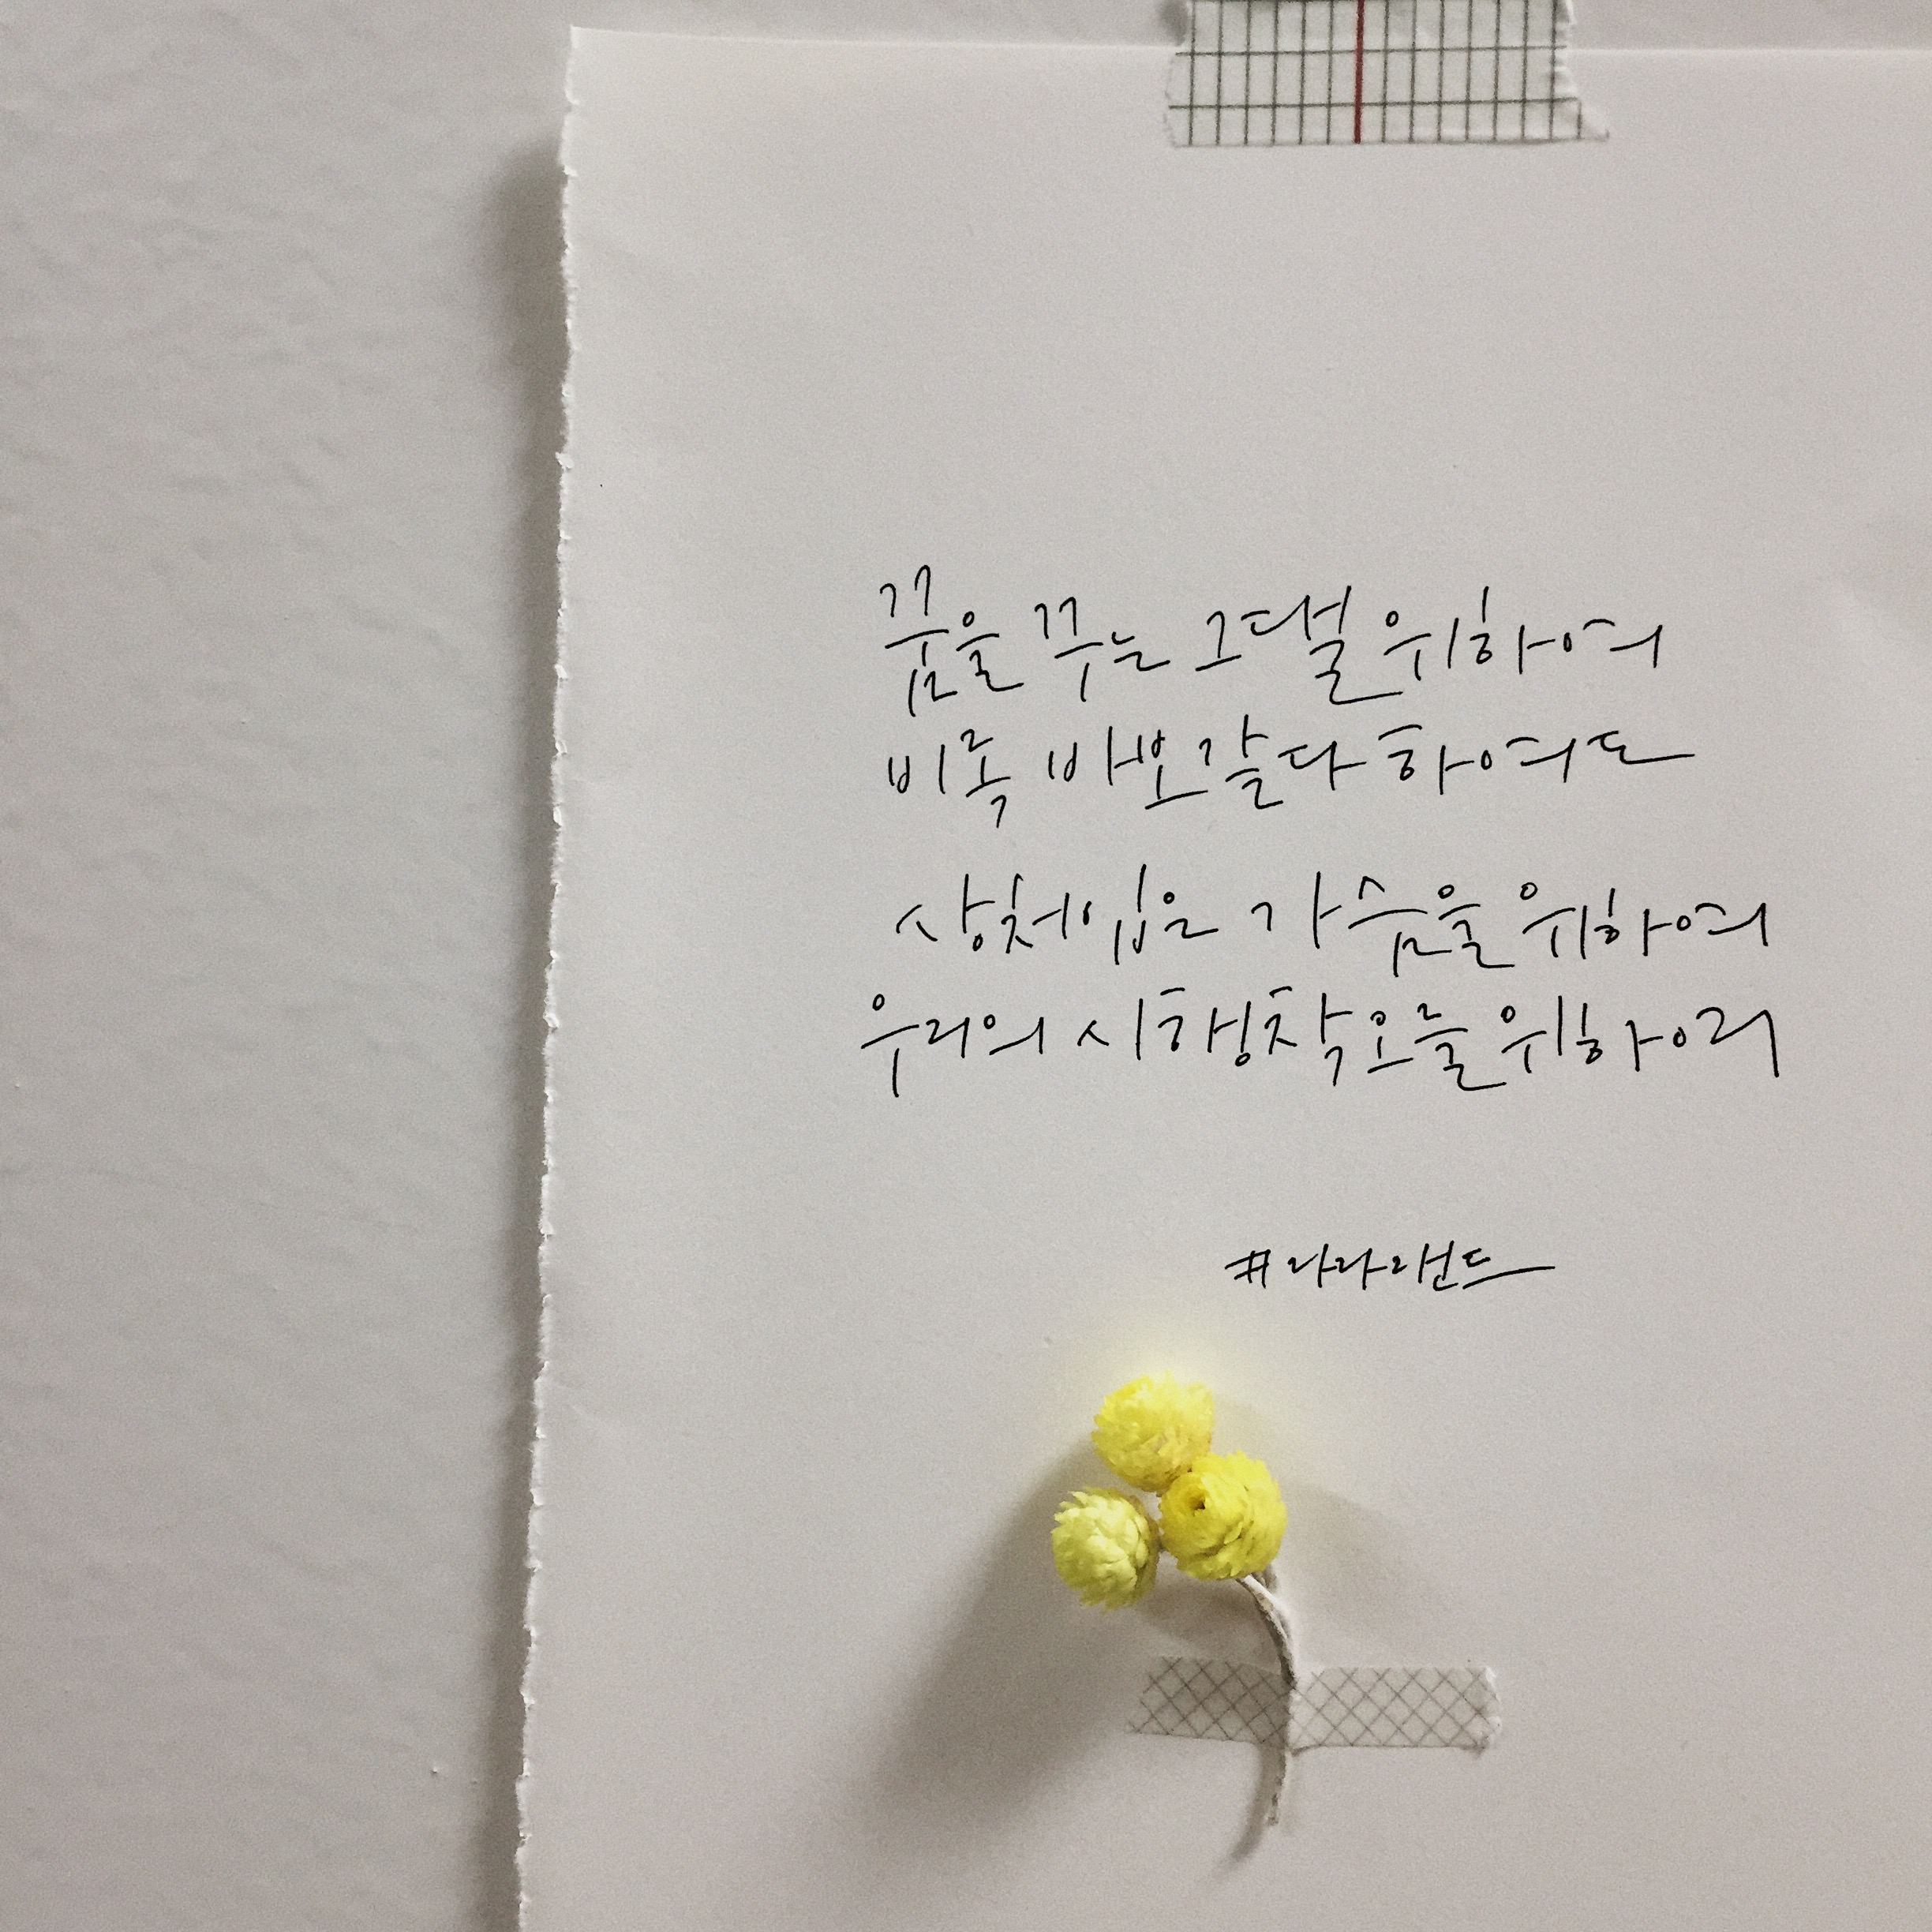 꿈을 꾸는 그댈 위하여
비록 바보같다 하여도
상처입은 가슴을 위하여
우리의 시행착오를 위하여
#라라랜드